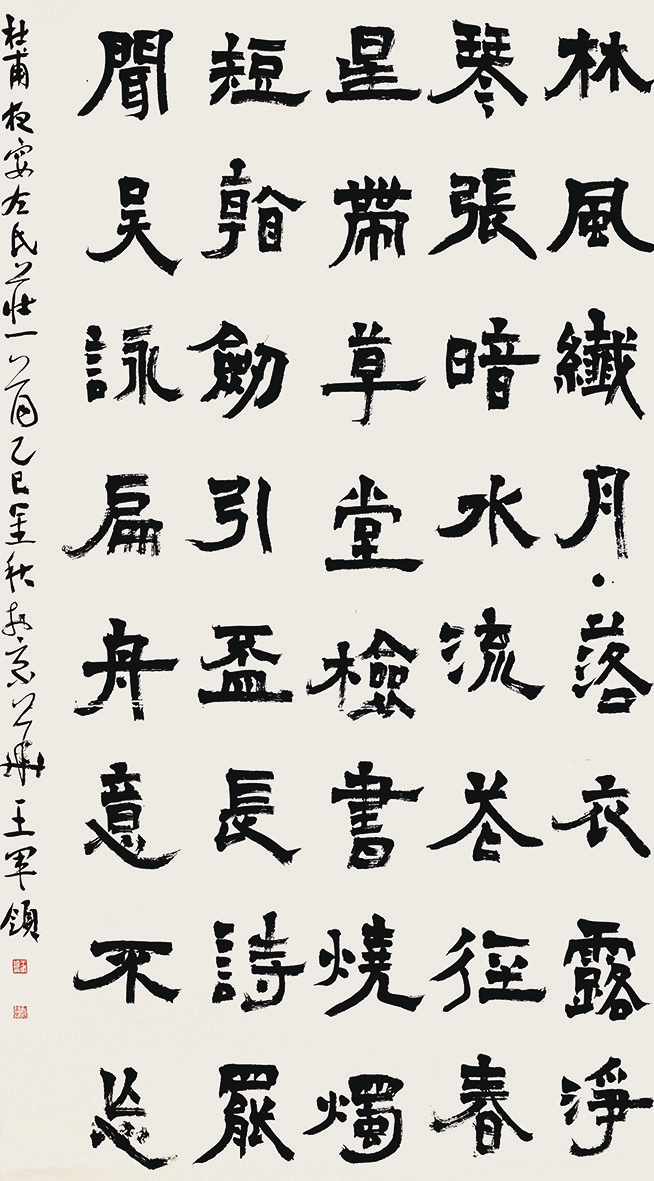 林風纖月·落衣露淨
琴張暗水流花徑春
星帶草堂檢書燒燭
短看劒引盃長詩罷
聞吳詠扁舟意不忘
杜甫夜宴左氏莊一首乙巳金秋於京華王軍領